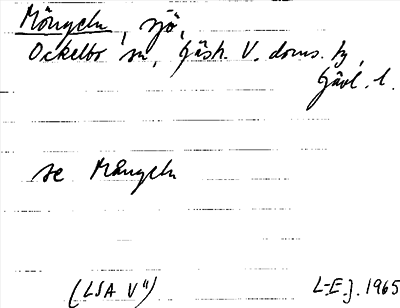 Möngeln, sjö,
Ockelbo sn, Gästr. V. doms. tg,
Gävl. l.
se Mången
(LSA V")
L-E. J. 1965